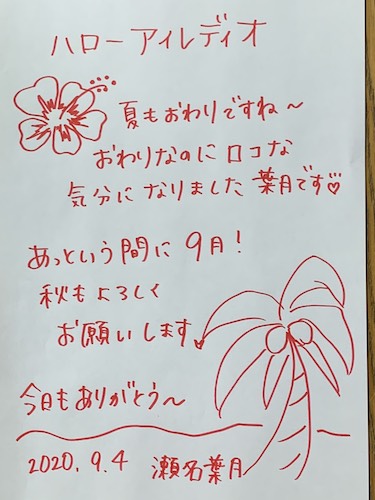 ハローアイレディオ
夏もおわりですね～
おわりなのにロコな
気分になりました葉月です♡
あっという間に9月!
秋もよろしく
お願いします♡
今日もありがとう～
2020.9.4 瀬名葉月